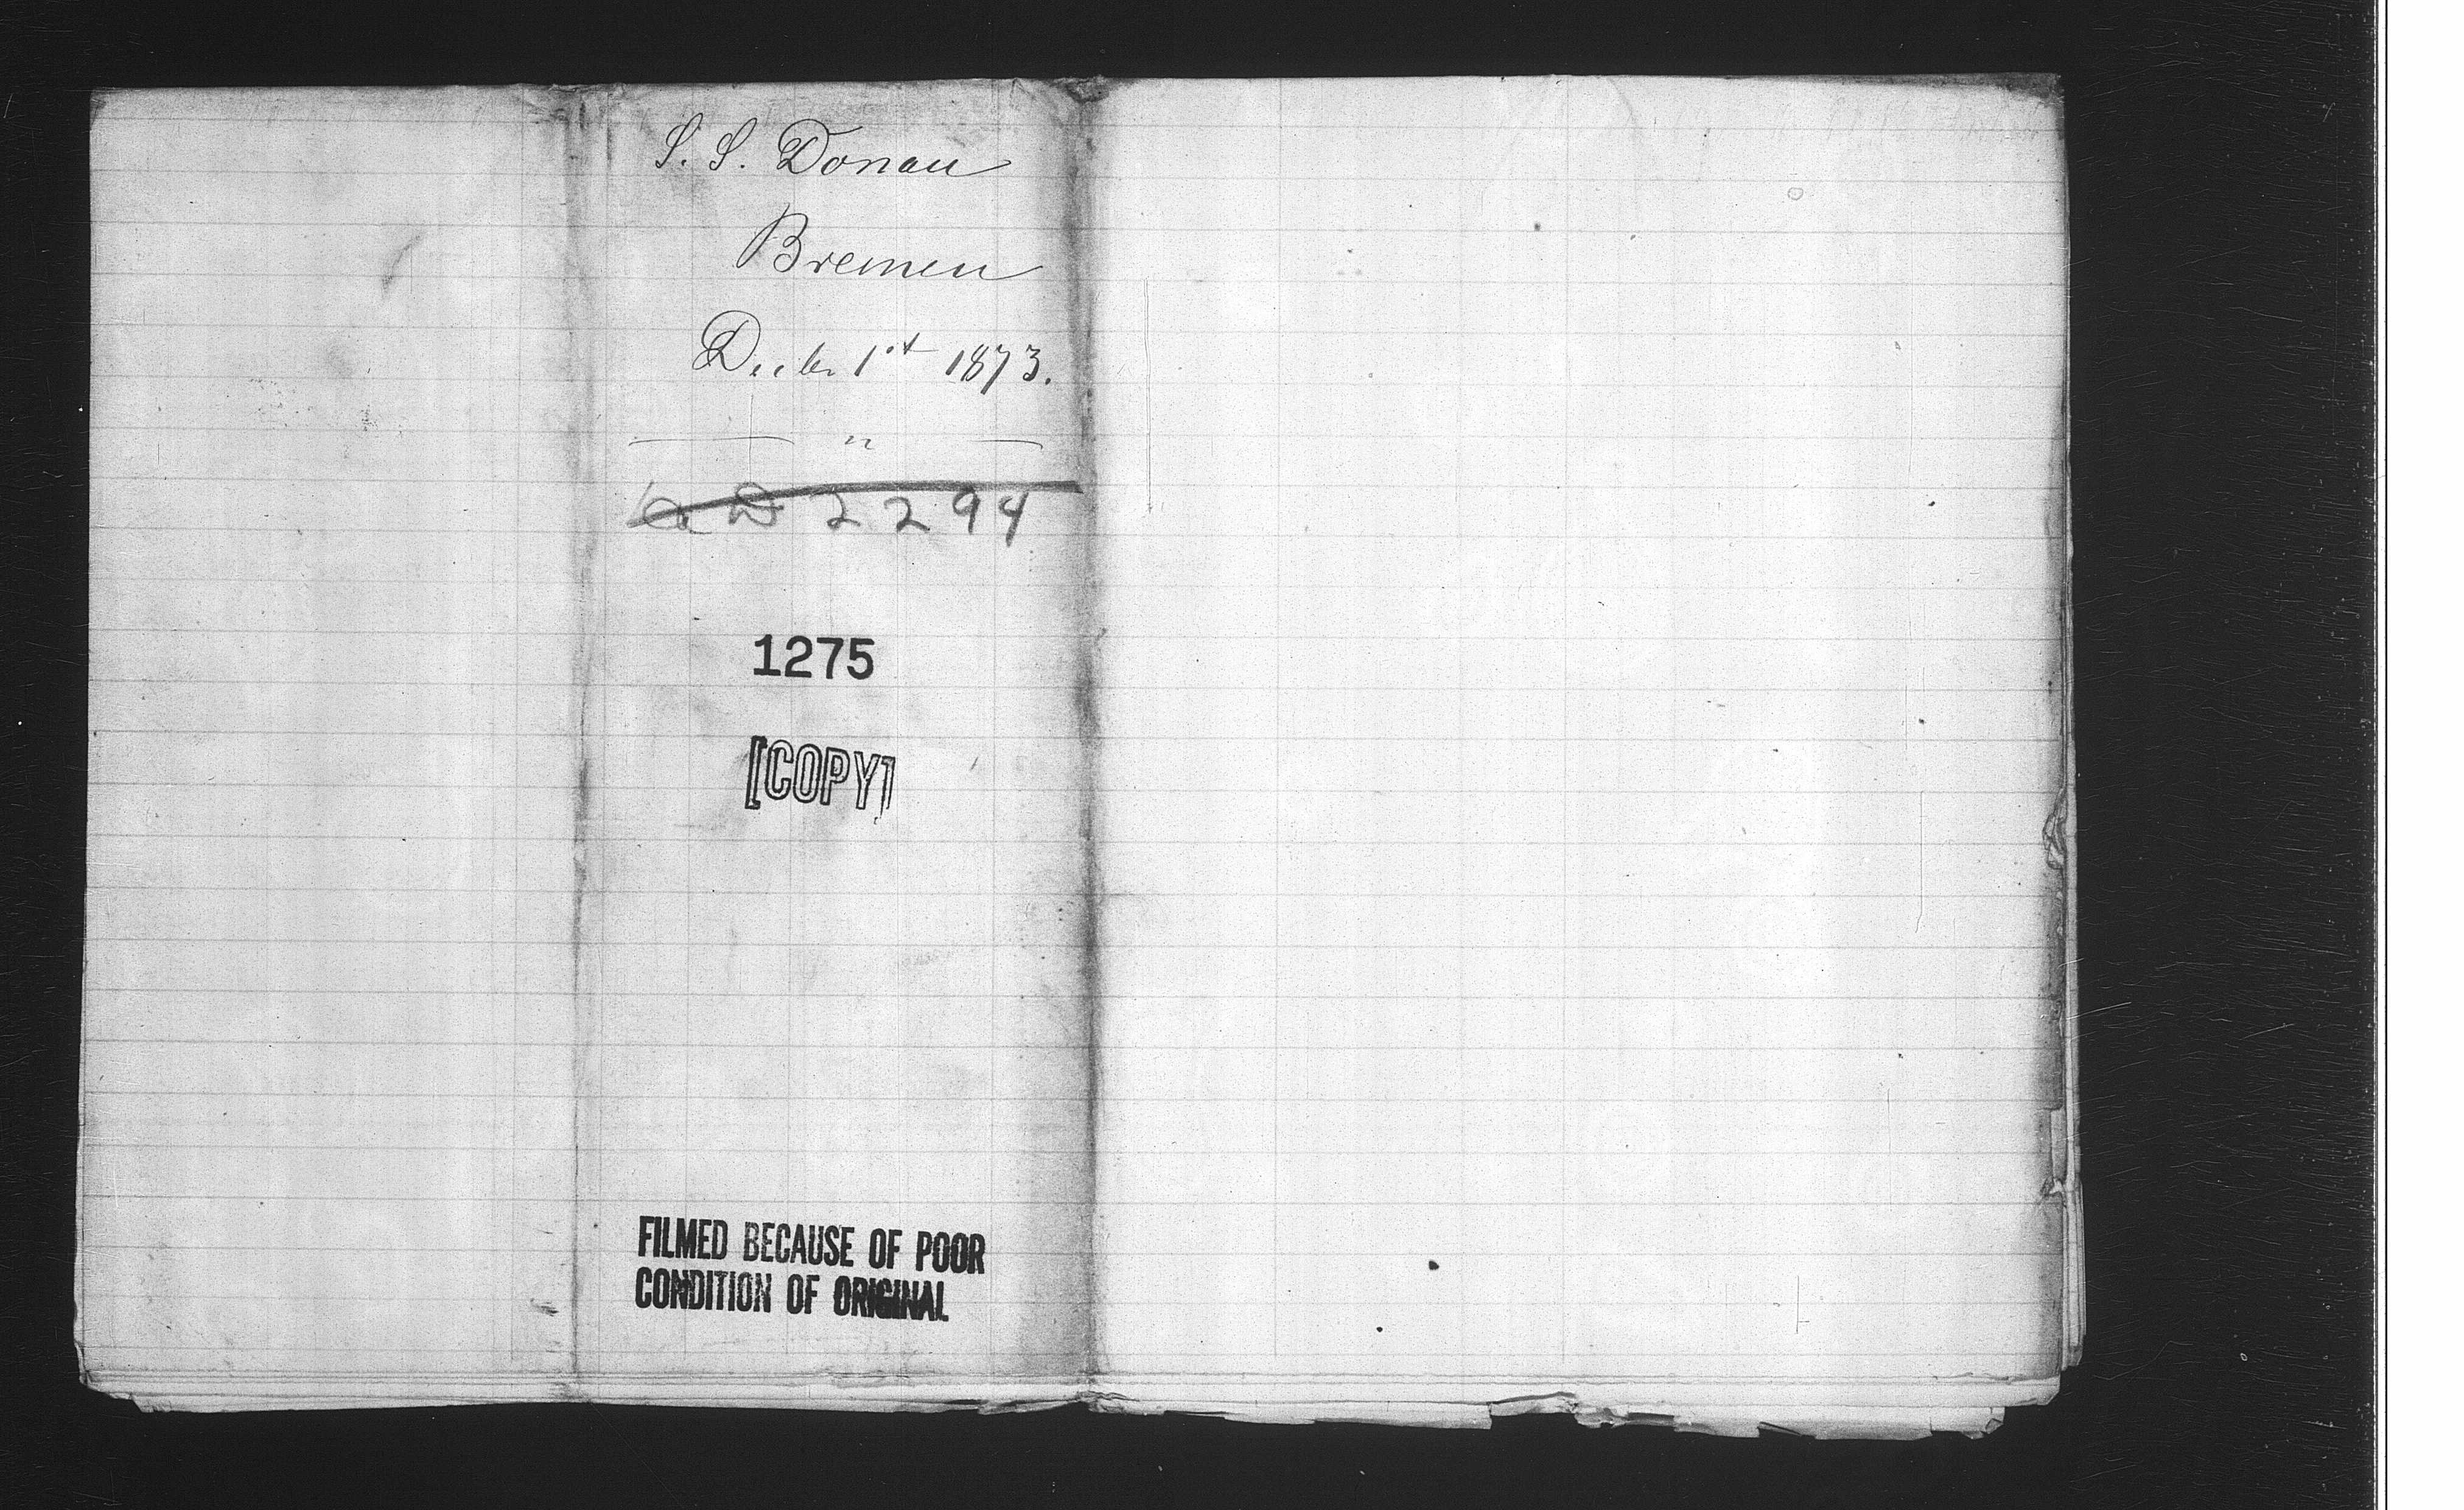 S. S. Donau
Bremen
Decbr 1st 1873.
"
2294
1275
[COPY]
FILMED BECAUSE OF POOR
CONDITION OF ORIGINAL